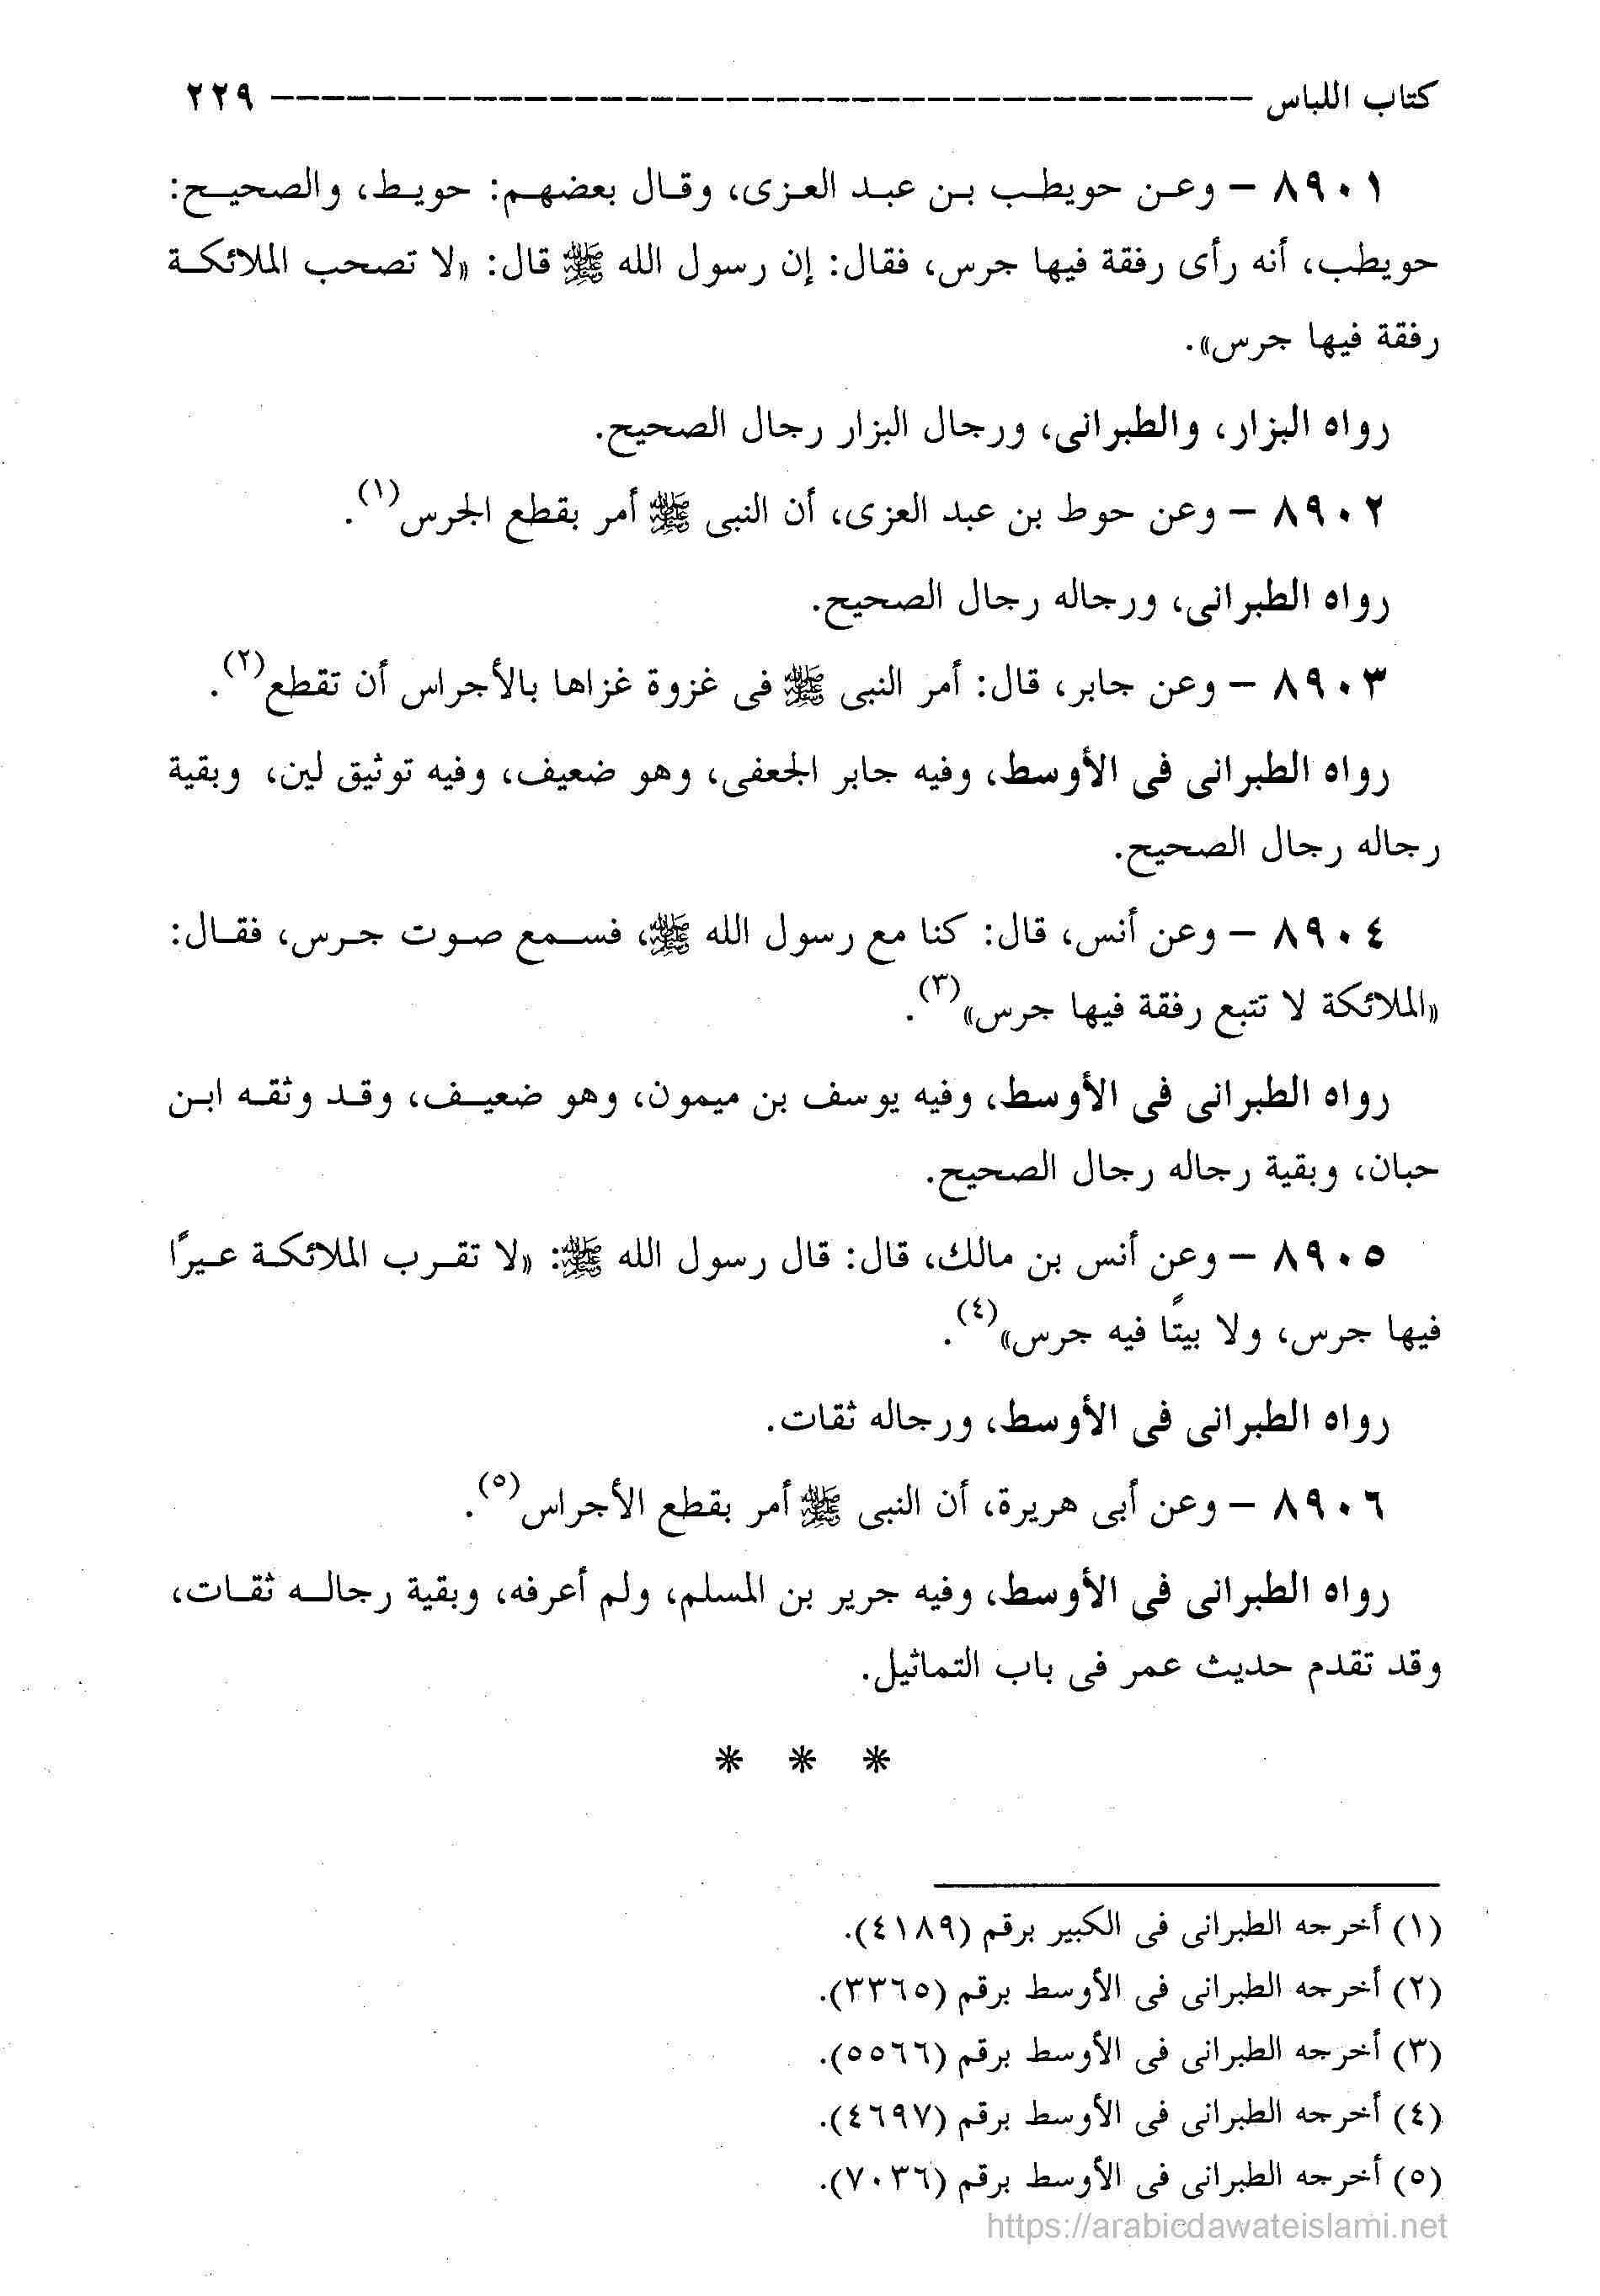 كتاب اللباس ---------------------------------------- ٢٢٩
٨٩٠١ – وعن حويطب بن عبد العزى، وقال بعضهم: حويط، والصحيح:
حويطب، أنه رأى رفقة فيها جرس، فقال: إن رسول الله ﷺ قال: «لا تصحب الملائكة
رفقة فيها جرس».
رواه البزار، والطبرانى، ورجال البزار رجال الصحيح.
٨٩٠٢ – وعن حوط بن عبد العزى، أن النبى ﷺ أمر بقطع الجرس(١).
رواه الطبرانى، ورجاله رجال الصحيح.
٨٩٠٣ – وعن جابر، قال: أمر النبى ﷺ فى غزوة غزاها بالأجراس أن تقطع(٢).
رواه الطبرانى فى الأوسط، وفيه جابر الجعفى، وهو ضعيف، وفيه توثيق لين، وبقية
رجاله رجال الصحيح.
٨٩٠٤ – وعن أنس، قال: كنا مع رسول الله ﷺ، فسمع صوت جرس، فقال:
«الملائكة لا تتبع رفقة فيها جرس»(٣).
رواه الطبرانى فى الأوسط، وفيه يوسف بن ميمون، وهو ضعيف، وقد وثقه ابن
حبان، وبقية رجاله رجال الصحيح.
٨٩٠٥ – وعن أنس بن مالك، قال: قال رسول الله ﷺ: «لا تقرب الملائكة عيرًا
فيها جرس، ولا بيتًا فيه جرس»(٤).
رواه الطبرانى فى الأوسط، ورجاله ثقات.
٨٩٠٦ – وعن أبى هريرة، أن النبى ﷺ أمر بقطع الأجراس(٥).
رواه الطبرانى فى الأوسط، وفيه جرير بن المسلم، ولم أعرفه، وبقية رجاله ثقات،
وقد تقدم حديث عمر فى باب التماثيل.
* * *
(١) أخرجه الطبرانى فى الكبير برقم (٤١٨٩).
(٢) أخرجه الطبرانى فى الأوسط برقم (٣٣٦٥).
(٣) أخرجه الطبرانى فى الأوسط برقم (٥٥٦٦).
(٤) أخرجه الطبرانى فى الأوسط برقم (٤٦٩٧).
(٥) أخرجه الطبرانى فى الأوسط برقم (٧٠٣٦).
https://arabicdawateislami.net